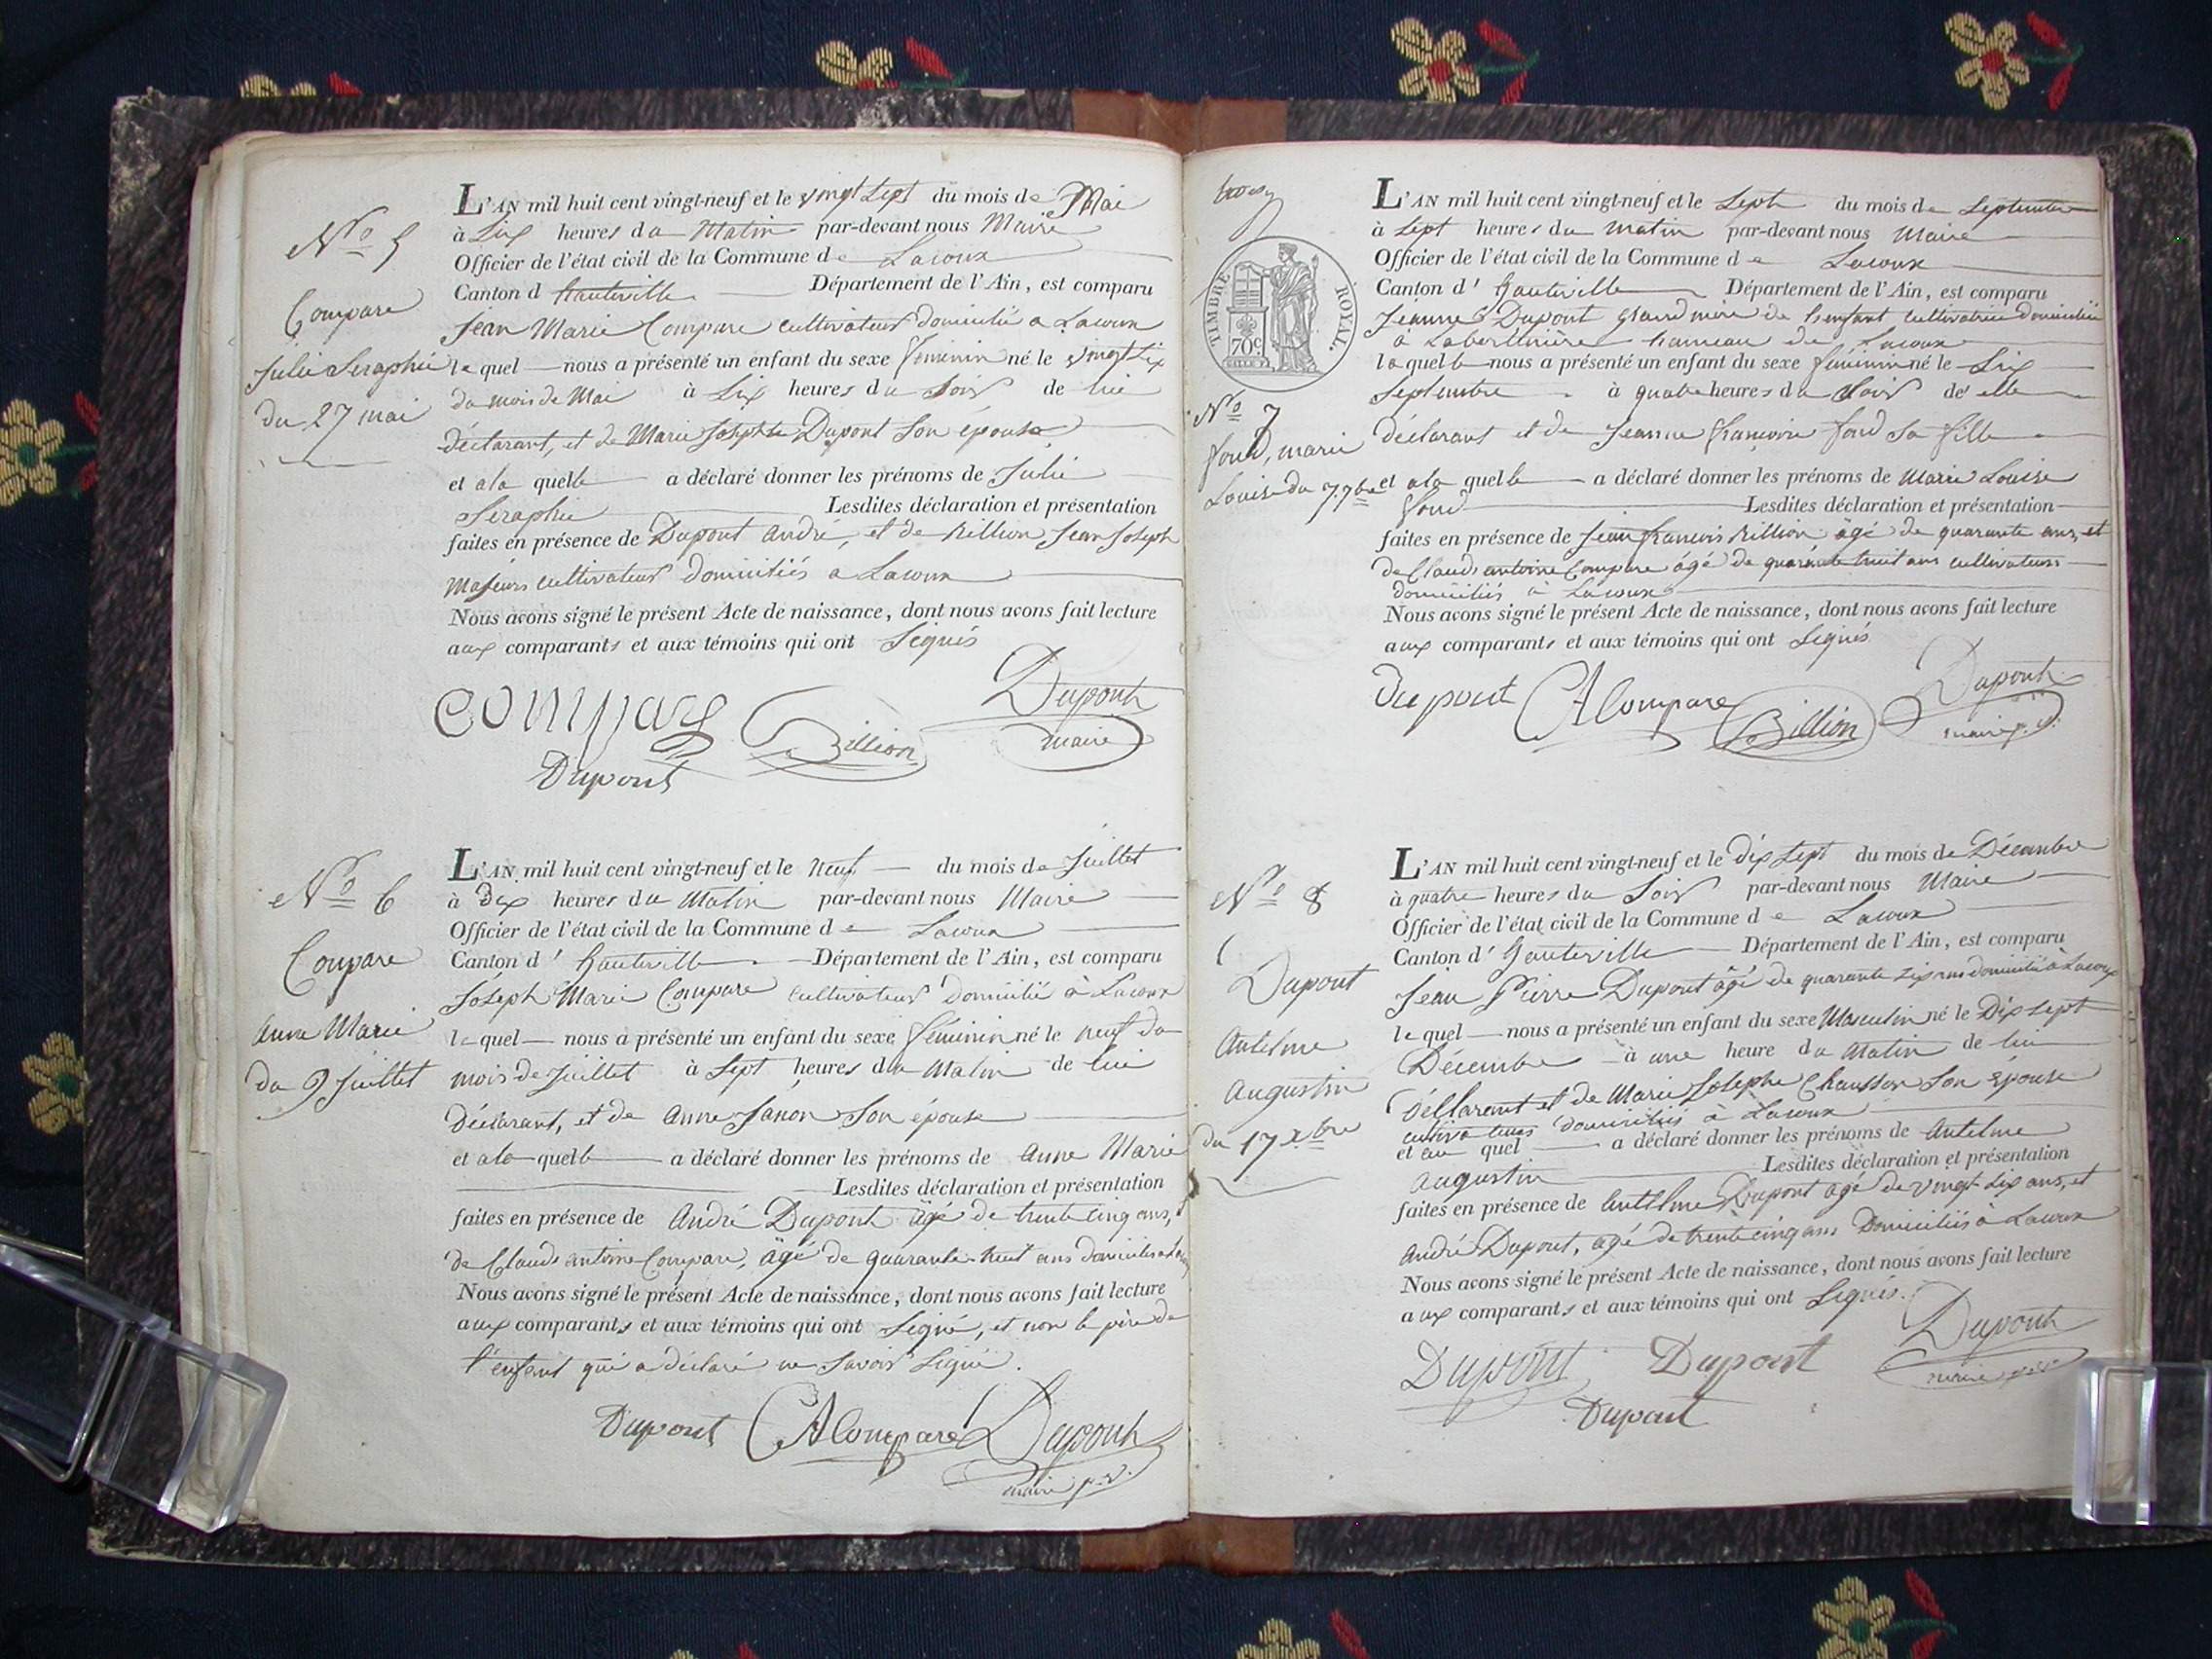 N.o 5
Compare
Julie Seraphie
du 27 mai
L'AN mil huit cent vingt-neuf et le vingt sept du mois de Mai
à Six heures du Matin par-devant nous Maire
Officier de l'état civil de la Commune de Lacoux
Canton d hauteville Département de l'Ain, est comparu
Jean Marie Compare cultivateur domicilié a Lacoux
lequel nous a présenté un enfant du sexe féminin né le vingt Six
du mois de Mai à Six heures du Soir de lui
déclarant, et de Marie Josephte Dupont Son épouse
et a la quelle a déclaré donner les prénoms de Julie
Seraphie Lesdites déclaration et présentation
faites en présence de Dupont andré, et de Billion Jean Joseph
Majeurs cultivateurs domiciliés a Lacoux
Nous avons signé le présent Acte de naissance, dont nous avons fait lecture
aux comparants et aux témoins qui ont Signés
compare Billion Dupont
maire
Dupont
N.o 6
Compare
anne Marie
du 9 Juillet
L'AN mil huit cent vingt-neuf et le neuf du mois de Juillet
à Dix heures du Matin par-devant nous Maire
Officier de l'état civil de la Commune de Lacoux
Canton d' hauteville Département de l'Ain, est comparu
Joseph Marie Compare cultivateur Domicilié à Lacoux
lequel nous a présenté un enfant du sexe féminin né le neuf du
mois de Juillet à Sept heures du Matin de lui
Déclarant, et de anne Janon Son épouse
et a la quelle a déclaré donner les prénoms de anne Marie
Lesdites déclaration et présentation
faites en présence de André Dupont âgé de trente cinq ans,
de Claude antoine Compare, âgé de quarante huit ans domiciliés
Nous avons signé le présent Acte de naissance, dont nous avons fait lecture
aux comparants et aux témoins qui ont Signé, et non le père de
l'enfant qui a déclaré ne Savoir Signé.
Dupont CAlompare Dupont
maire
TIMBRE ROYAL.
70c.
N.o 7
fond, marie
Louise du 7 7bre
L'AN mil huit cent vingt-neuf et le Sept du mois de Septembre
à Sept heures du matin par-devant nous Maire
Officier de l'état civil de la Commune de Lacoux
Canton d' hauteville Département de l'Ain, est comparu
Jeanne Dupont grand mère de l'enfant cultivatrice domiciliée
à hameau de Lacoux
laquelle nous a présenté un enfant du sexe féminin né le Six
Septembre à quatre heures du Soir de elle
déclarant et de Jeanne françoise fond Sa fille
et a la quelle a déclaré donner les prénoms de Marie Louise
fond Lesdites déclaration et présentation
faites en présence de Jean françois Billion âgé de quarante ans, et
de Claude antoine Compare âgé de quarante huit ans cultivateurs
domiciliés à Lacoux
Nous avons signé le présent Acte de naissance, dont nous avons fait lecture
aux comparants et aux témoins qui ont Signés
dupont CACompare Billion Dupont
maire
N.o 8
Dupont
Antelme
Augustin
du 17 xbre
L'AN mil huit cent vingt-neuf et le dix Sept du mois de Décembre
à quatre heures du Soir par-devant nous Maire
Officier de l'état civil de la Commune de Lacoux
Canton d' hauteville Département de l'Ain, est comparu
Jean Pierre Dupont âgé de quarante Six ans domicilié à Lacoux
lequel nous a présenté un enfant du sexe Masculin né le Dix Sept
Décembre à une heure du Matin de lui
Déclarant et de Marie Josephe Chausson Son épouse
cultivateurs domiciliés à Lacoux
et au quel a déclaré donner les prénoms de Antelme
Augustin Lesdites déclaration et présentation
faites en présence de Antelme Dupont âgé de vingt Six ans, et
André Dupont, âgé de trente cinq ans Domiciliés à Lacoux
Nous avons signé le présent Acte de naissance, dont nous avons fait lecture
aux comparants et aux témoins qui ont Signés.
Dupont Dupont Dupont
maire
Dupont